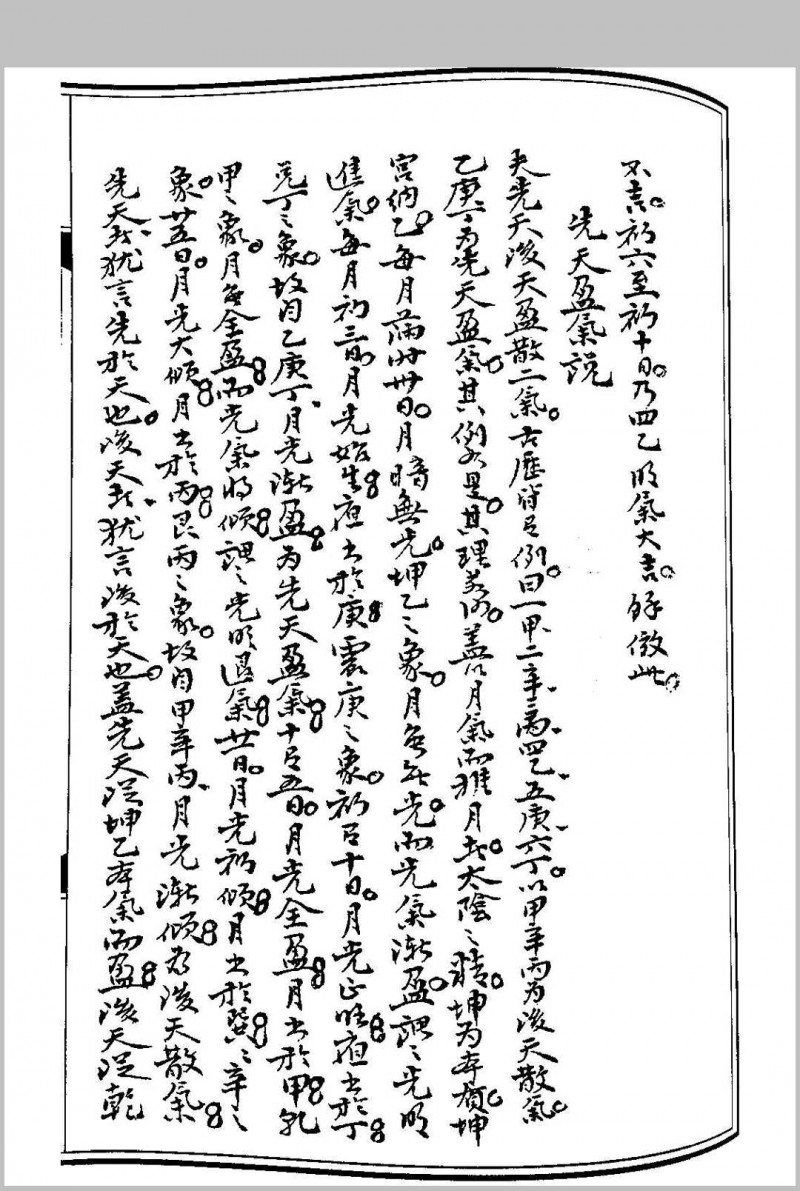 不吉。初六至初十日。乃四乙明氣大吉。餘倣此。
先天盈氣說
夫先天後天盈散二氣。古歷皆曰例曰一甲、二辛、三丙、四乙、五庚、六丁。以甲辛丙为後天散氣。
乙庚丁为先天盈氣。其例如是。其理若何。盖以月氣而推月者。太陰之精。坤为本質。坤
宮納乙。每月滿卅日。月暗無光。坤乙之象。月無光。而光氣漸盈。謂之光明
進氣。每月初三日。月光始生。夜出於庚。震庚之象。初十日。月光正旺。夜出於丁。
兌丁之象。故自乙庚丁、月光漸盈为先天盈氣。十五日。月光全盈。月出於甲。乾
甲之象。月無全盈。而光氣将傾。謂之光明退氣。廿日。月光初傾。月出於巽。巽辛之
象。廿五日。月光大傾。月出於丙。艮丙之象。故自甲辛丙、月光漸傾为後天散氣。
先天者、犹言先於天也。後天者、犹言後於天也。盖先天從坤乙本氣而盈。後天從乾